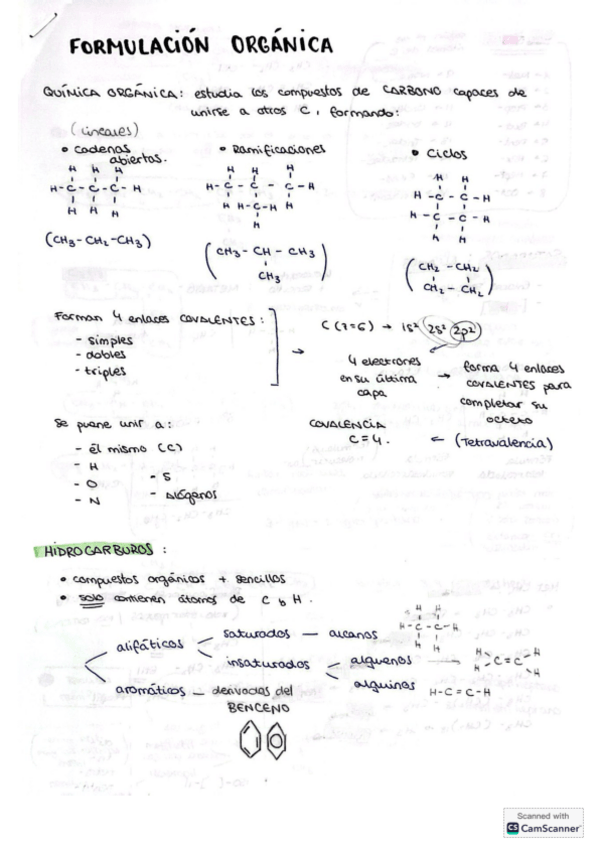 FORMULACIÓN ORGÁNICA
QUÍMICA ORGÁNICA: estudia los compuestos de CARBONO capaces de
unirse a otros C, formando:
(lineales)
• cadenas
abiertas.
• Ramificaciones
• Ciclos
H H H
H-C-C-C-H
H H H
(CH3-CH2-CH3)
H H H
H-C-C-C-H
H H-C-H H
H
(CH3-CH-CH3)
CH3
H H
H-C-C-H
H-C-C-H
H H
(CH2-CH2)
CH2-CH2
Forman 4 enlaces COVALENTES:
- simples
- dobles
- triples
→ C (Z=6) → 1s² 2s² 2p²
4 electrones
en su última
capa
→ forma 4 enlaces
COVALENTES para
completar su
octeto
COVALENCIA
C=4.
← (Tetravalencia)
Se puede unir a:
- él mismo (C)
- H
- O
- N
- S
- Alógenos
HIDROCARBUROS:
• compuestos orgánicos + sencillos
• solo contienen átomos de C b H.
alifáticos
saturados — alcanos
insaturados
alquenos →
alquinos
aromáticos — derivados del
BENCENO
H H
H-C-C-H
H H
H H
C=C
H H
H-C=C-H
Scanned with
CS CamScanner